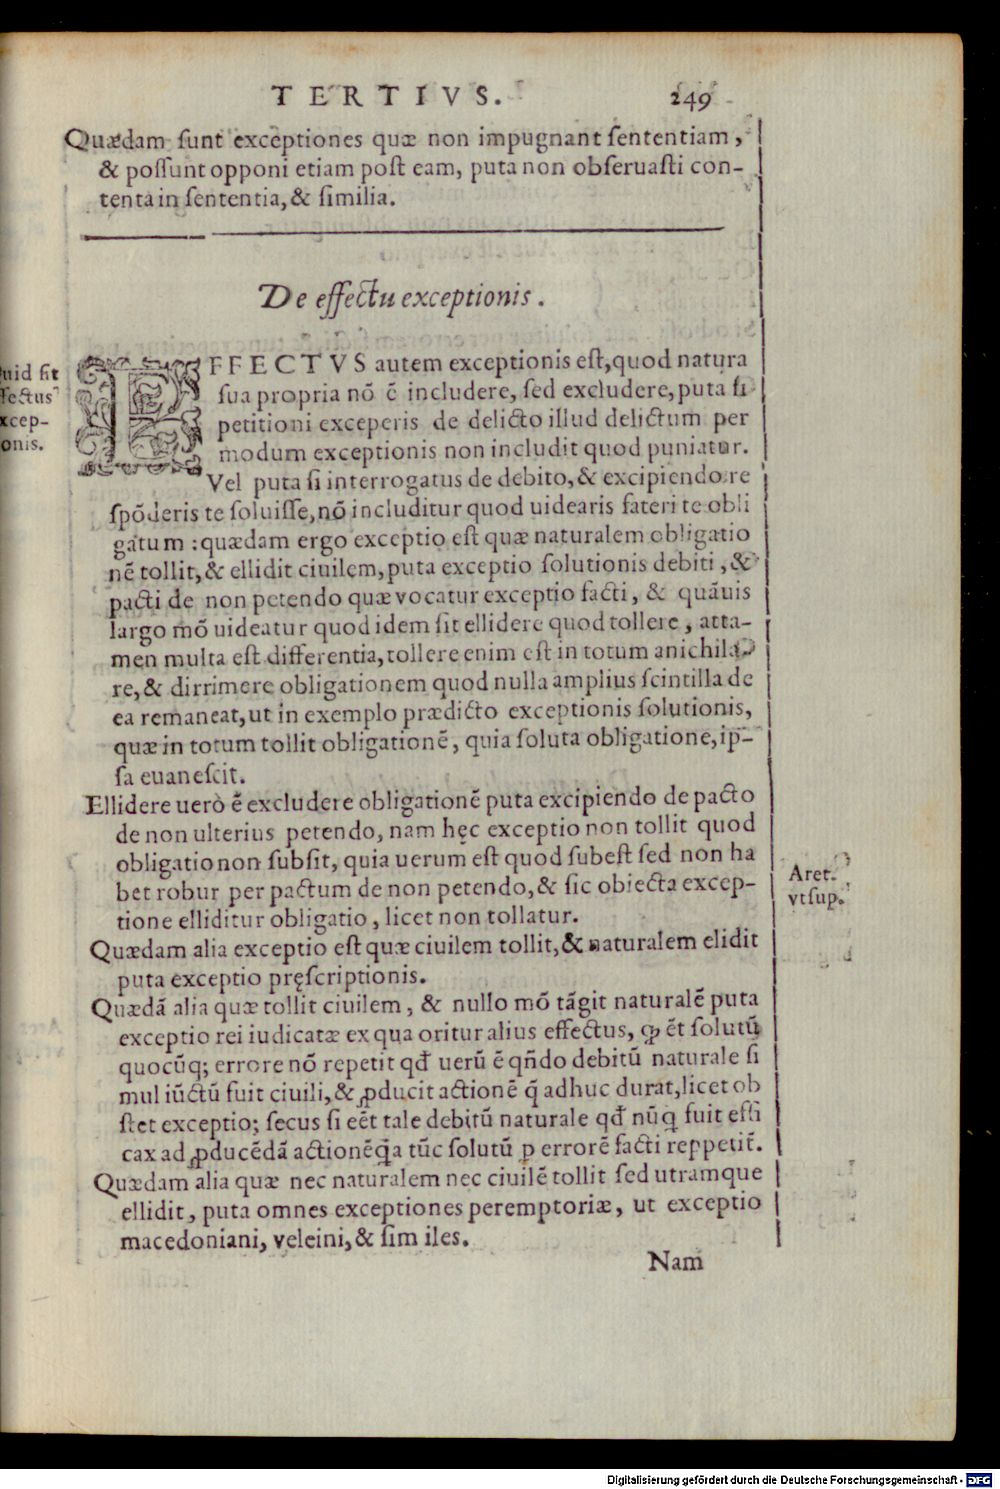 TERTIVS. 249
Quædam sunt exceptiones quæ non impugnant sententiam,
& possunt opponi etiam post eam, puta non obseruasti con-
tenta in sententia, & similia.
De effectu exceptionis.
uid sit
fectus
xcep-
onis.
EFFECTVS autem exceptionis est, quod natura
sua propria nõ ẽ includere, sed excludere, puta si
petitioni exceperis de delicto illud delictum per
modum exceptionis non includit quod puniatur.
Vel puta si interrogatus de debito, & excipiendo re
spõderis te soluisse, nõ includitur quod uidearis fateri te obli
gatum : quædam ergo exceptio est quæ naturalem obligatio
nẽ tollit, & ellidit ciuilem, puta exceptio solutionis debiti, &
pacti de non petendo quæ vocatur exceptio facti, & quãuis
largo mõ uideatur quod idem sit ellidere quod tollere, atta-
men multa est differentia, tollere enim est in totum anichila
re, & dirrimere obligationem quod nulla amplius scintilla de
ea remaneat, ut in exemplo prædicto exceptionis solutionis,
quæ in totum tollit obligationẽ, quia soluta obligatione, ip-
sa euanescit.
Ellidere uerò ẽ excludere obligationẽ puta excipiendo de pacto
de non ulterius petendo, nam hęc exceptio non tollit quod
obligatio non subsit, quia uerum est quod subest sed non ha
bet robur per pactum de non petendo, & sic obiecta excep-
tione elliditur obligatio, licet non tollatur.
Aret.
vt sup.
Quædam alia exceptio est quæ ciuilem tollit, & naturalem elidit
puta exceptio pręscriptionis.
Quædã alia quæ tollit ciuilem, & nullo mõ tãgit naturalẽ puta
exceptio rei iudicatæ ex qua oritur alius effectus, ꝙ ẽt solutũ
quocũq; errore nõ repetit qđ uerũ ẽ qñdo debitũ naturale si
mul iũctũ fuit ciuili, & ꝓducit actionẽ q̃ adhuc durat, licet ob
stet exceptio; secus si eẽt tale debitũ naturale qđ nũq̃ fuit effi
cax ad ꝓducẽdã actionẽ q̃a tũc solutũ ꝑ errorẽ facti reppetit̃.
Quædam alia quæ nec naturalem nec ciuilẽ tollit sed utramque
ellidit, puta omnes exceptiones peremptoriæ, ut exceptio
macedoniani, veleini, & similes.
Nam
Digitalisierung gefördert durch die Deutsche Forschungsgemeinschaft - DFG